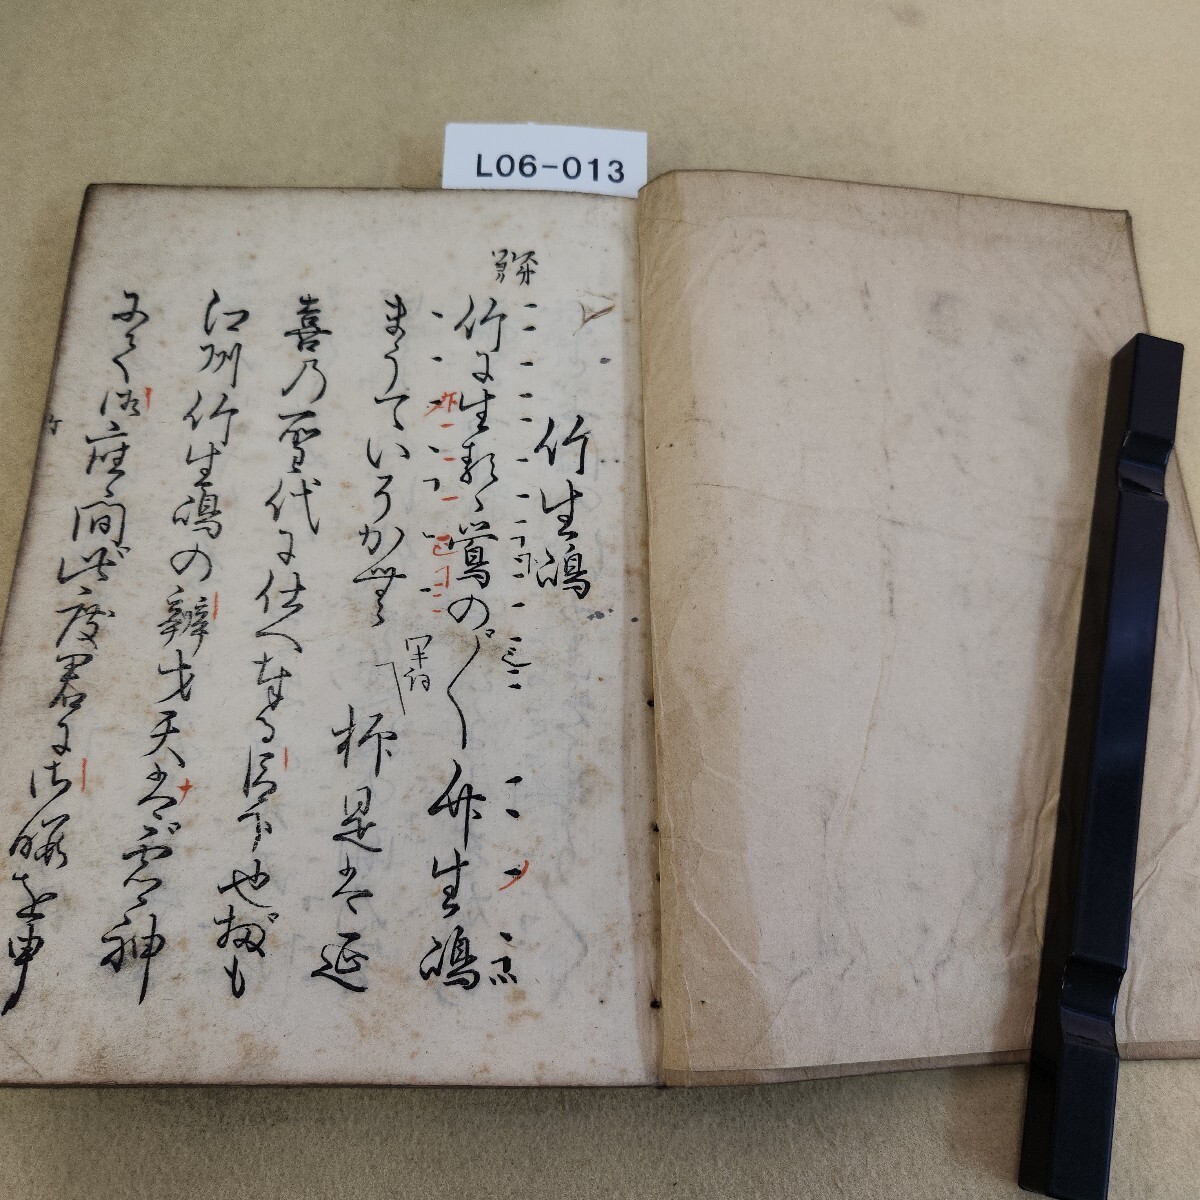 L06-013
竹生嶋
竹に生るゝ鶯の〳〵竹生嶋
まうていそかむ
ワキ詞
抑是は延
喜乃聖代に仕へ奉る臣下也扨も
江州竹生嶋の辨才天は霊神
にて御座間此度君に御暇を申